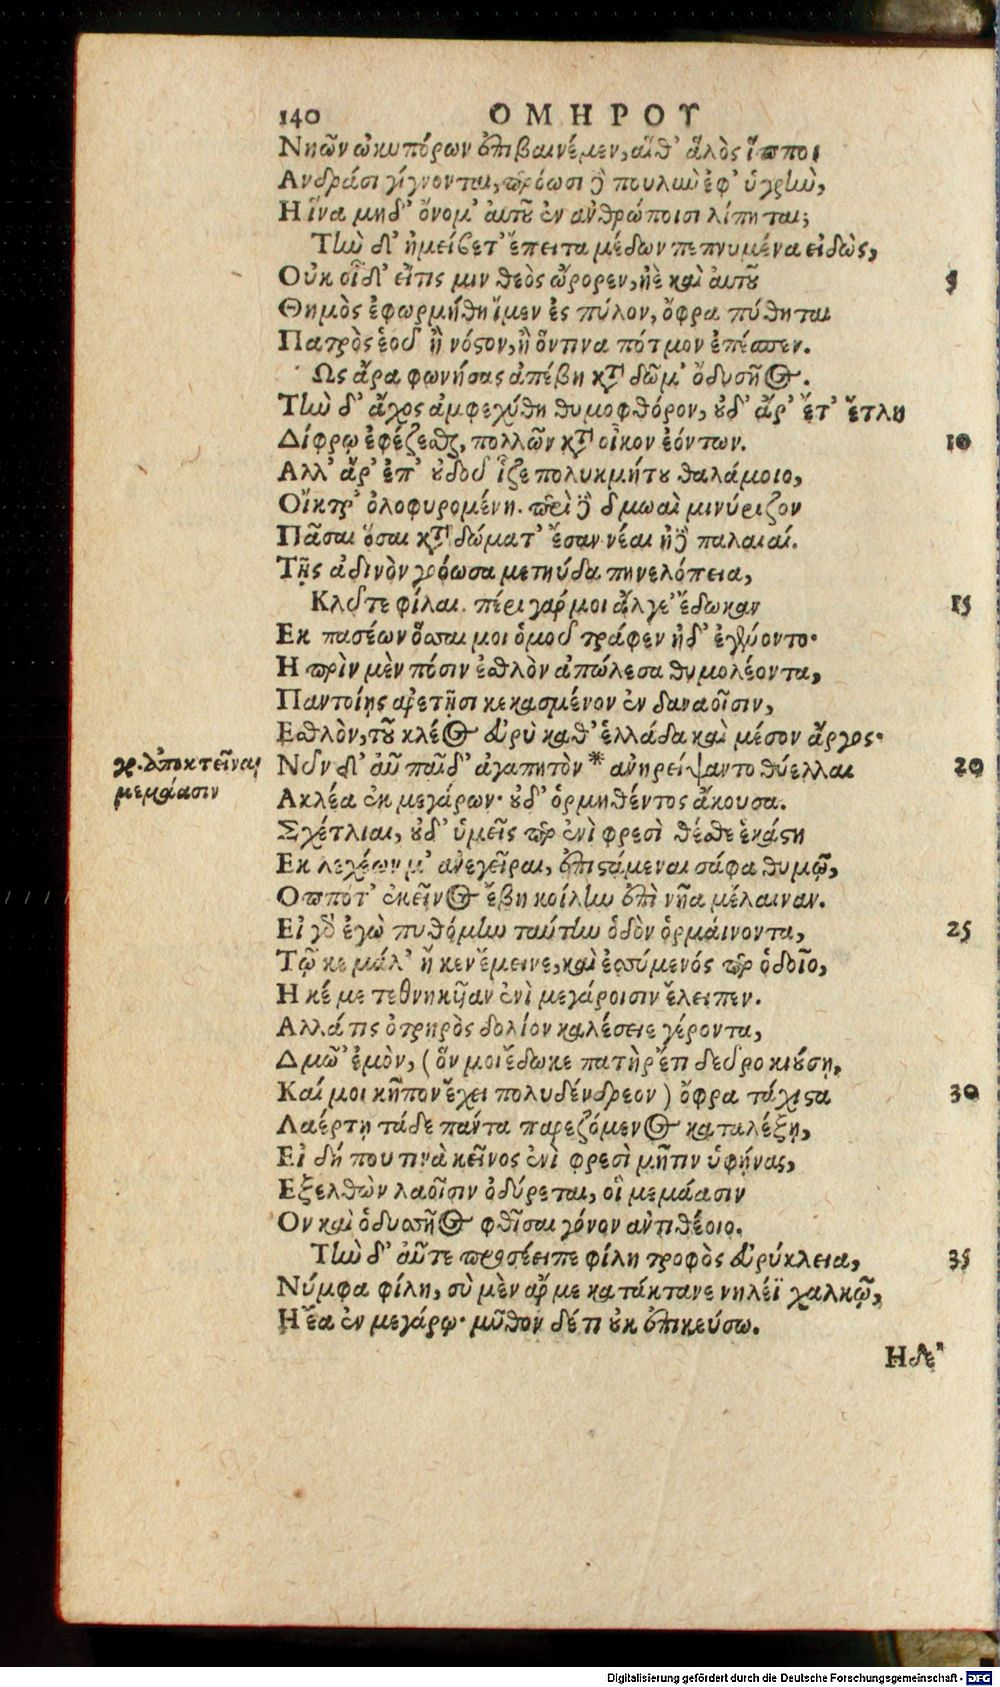 140 ΟΜΗΡΟΥ
Νηῶν ὠκυπόρων ἐπιβαινέμεν, αἵ θ' ἁλὸς ἵπποι
Ανδράσι γίγνονται, περόωσι δὲ πουλὺν ἐφ' ὑγρὴν,
Η ἵνα μηδ' ὄνομ' αὐτοῦ ἐν ἀνθρώποισι λίπηται;
Τὴν δ' ἠμείβετ' ἔπειτα μέδων πεπνυμένα εἰδὼς,
Οὐκ οἶδ' εἴτις μιν θεὸς ὤρορεν, ἠὲ καὶ αὐτοῦ 5
Θημὸς ἐφωρμήθη ἴμεν ἐς πύλον, ὄφρα πύθηται
Πατρὸς ἑοῦ ἢ νόστον, ἢ ὅντινα πότμον ἐπέσπεν.
Ως ἄρα φωνήσας ἀπέβη κατὰ δῶμ' ὀδυσῆος.
Τὴν δ' ἄχος ἀμφεχύθη θυμοφθόρον, οὐδ' ἄρ' ἔτ' ἔτλη
Δίφρῳ ἐφέζεσθαι, πολλῶν κατὰ οἶκον ἐόντων. 10
Αλλ' ἄρ' ἐπ' οὐδοῦ ἷζε πολυκμήτου θαλάμοιο,
Οἴκτρ' ὀλοφυρομένη. περὶ δὲ δμωαὶ μινύριζον
Πᾶσαι ὅσαι κατὰ δώματ' ἔσαν νέαι ἠδὲ παλαιαί.
Τῇς ἀδινὸν γοόωσα μετηύδα πηνελόπεια,
Κλῦτε φίλαι. πέρι γάρ μοι ἄλγε' ἔδωκαν 15
Εκ πασέων ὅσσαι μοι ὁμοῦ τράφεν ἠδ' ἐγένοντο·
Η πρὶν μὲν πόσιν ἐσθλὸν ἀπώλεσα θυμολέοντα,
Παντοίῃς ἀρετῇσι κεκασμένον ἐν δαναοῖσιν,
Εσθλὸν, τοῦ κλέος εὐρὺ καθ' ἑλλάδα καὶ μέσον ἄργος·
γρ. ἀποκτεῖναι μεμάασιν
Νῦν δ' αὖ παῖδ' ἀγαπητὸν * ἀνηρείψαντο θύελλαι 20
Ακλέα ἐκ μεγάρων· οὐδ' ὁρμηθέντος ἄκουσα.
Σχέτλιαι, οὐδ' ὑμεῖς περ ἐνὶ φρεσὶ θέσθε ἑκάστη
Εκ λεχέων μ' ἀνεγεῖραι, ἐπιστάμεναι σάφα θυμῷ,
Οππότ' ἐκεῖνος ἔβη κοίλην ἐπὶ νῆα μέλαιναν.
Εἰ γὰρ ἐγὼ πυθόμην ταύτην ὁδὸν ὁρμαίνοντα, 25
Τῷ κε μάλ' ἤ κεν ἔμεινε, καὶ ἐσσύμενός περ ὁδοῖο,
Η κέ με τεθνηκυῖαν ἐνὶ μεγάροισιν ἔλειπεν.
Αλλά τις ὀτρηρὸς δολίον καλέσειε γέροντα,
Δμῶ' ἐμὸν, (ὅν μοι ἔδωκε πατὴρ ἔτι δεῦρο κιούσῃ,
Καί μοι κῆπον ἔχει πολυδένδρεον) ὄφρα τάχιστα 30
Λαέρτῃ τάδε πάντα παρεζόμενος καταλέξῃ,
Εἰ δή που τινὰ κεῖνος ἐνὶ φρεσὶ μῆτιν ὑφήνας,
Εξελθὼν λαοῖσιν ὀδύρεται, οἳ μεμάασιν
Ον καὶ ὀδυσσῆος φθῖσαι γόνον ἀντιθέοιο.
Τὴν δ' αὖτε προσέειπε φίλη τροφὸς εὐρύκλεια, 35
Νύμφα φίλη, σὺ μὲν ἄρ με κατάκτανε νηλέϊ χαλκῷ,
Η ἔα ἐν μεγάρῳ· μῦθον δέ τι οὐκ ἐπικεύσω.
Ηδε'
Digitalisierung gefördert durch die Deutsche Forschungsgemeinschaft - DFG